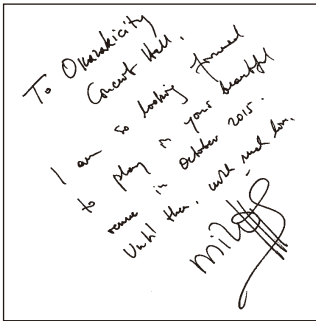 To Okazakicity
Concert Hall.
I am so looking forward
to play in your beautiful
venue in October 2015.
Until then, with much love.